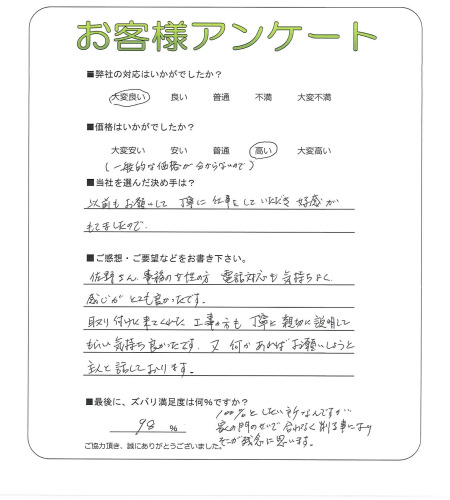 お客様アンケート
■弊社の対応はいかがでしたか？
大変良い 良い 普通 不満 大変不満
■価格はいかがでしたか？
大変安い 安い 普通 高い 大変高い
(一般的な価格が分からないので)
■当社を選んだ決め手は？
以前もお願いして 丁寧に仕事をしていただき 好感が
もてましたので.
■ご感想・ご要望などをお書き下さい。
佐野さん、事務の女性の方 電話対応も気持ちよく
感じが とても良かったです.
取り付けに来てくれた 工事の方も 丁寧に親切に説明して
もらい気持ち良かったです. 又 何かあればお願いしようと
主人と話しております.
■最後に、ズバリ満足度は何%ですか？
98 %
100%としたい所なんですが
家の門のせいで 合わなく 削る事になり
そこが残念に思います.
ご協力頂き、誠にありがとうございました。